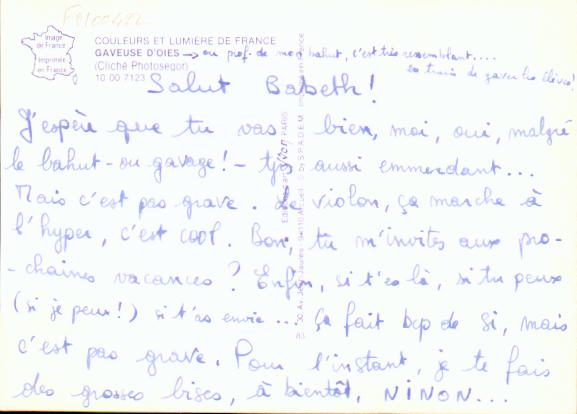 F2100422
Image
de France
Imprimée
en France
COULEURS ET LUMIÈRE DE FRANCE
GAVEUSE D'OIES → ou prof. de mon bahut, c'est très ressemblant....
(Cliché Photosegor) en train de gaver les élèves!
10 00 7123
Salut Babeth!
J'espère que tu vas bien, moi, oui, malgré
le bahut - ou gavage! - tjs aussi emmerdant...
Mais c'est pas grave. Le violon, ça marche à
l'hyper, c'est cool. Bon, tu m'invites aux pro-
-chaines vacances? Enfin, si t'es là, si tu peux
(si je peux!) si t'as envie... Ça fait bcp de si, mais
c'est pas grave. Pour l'instant, je te fais
des grosses bises, à bientôt, NINON...
83 30, Av. Jean-Jaurès - 94110 Arcueil - © by S.P.A.D.E.M.
Yvon PARIS
en France